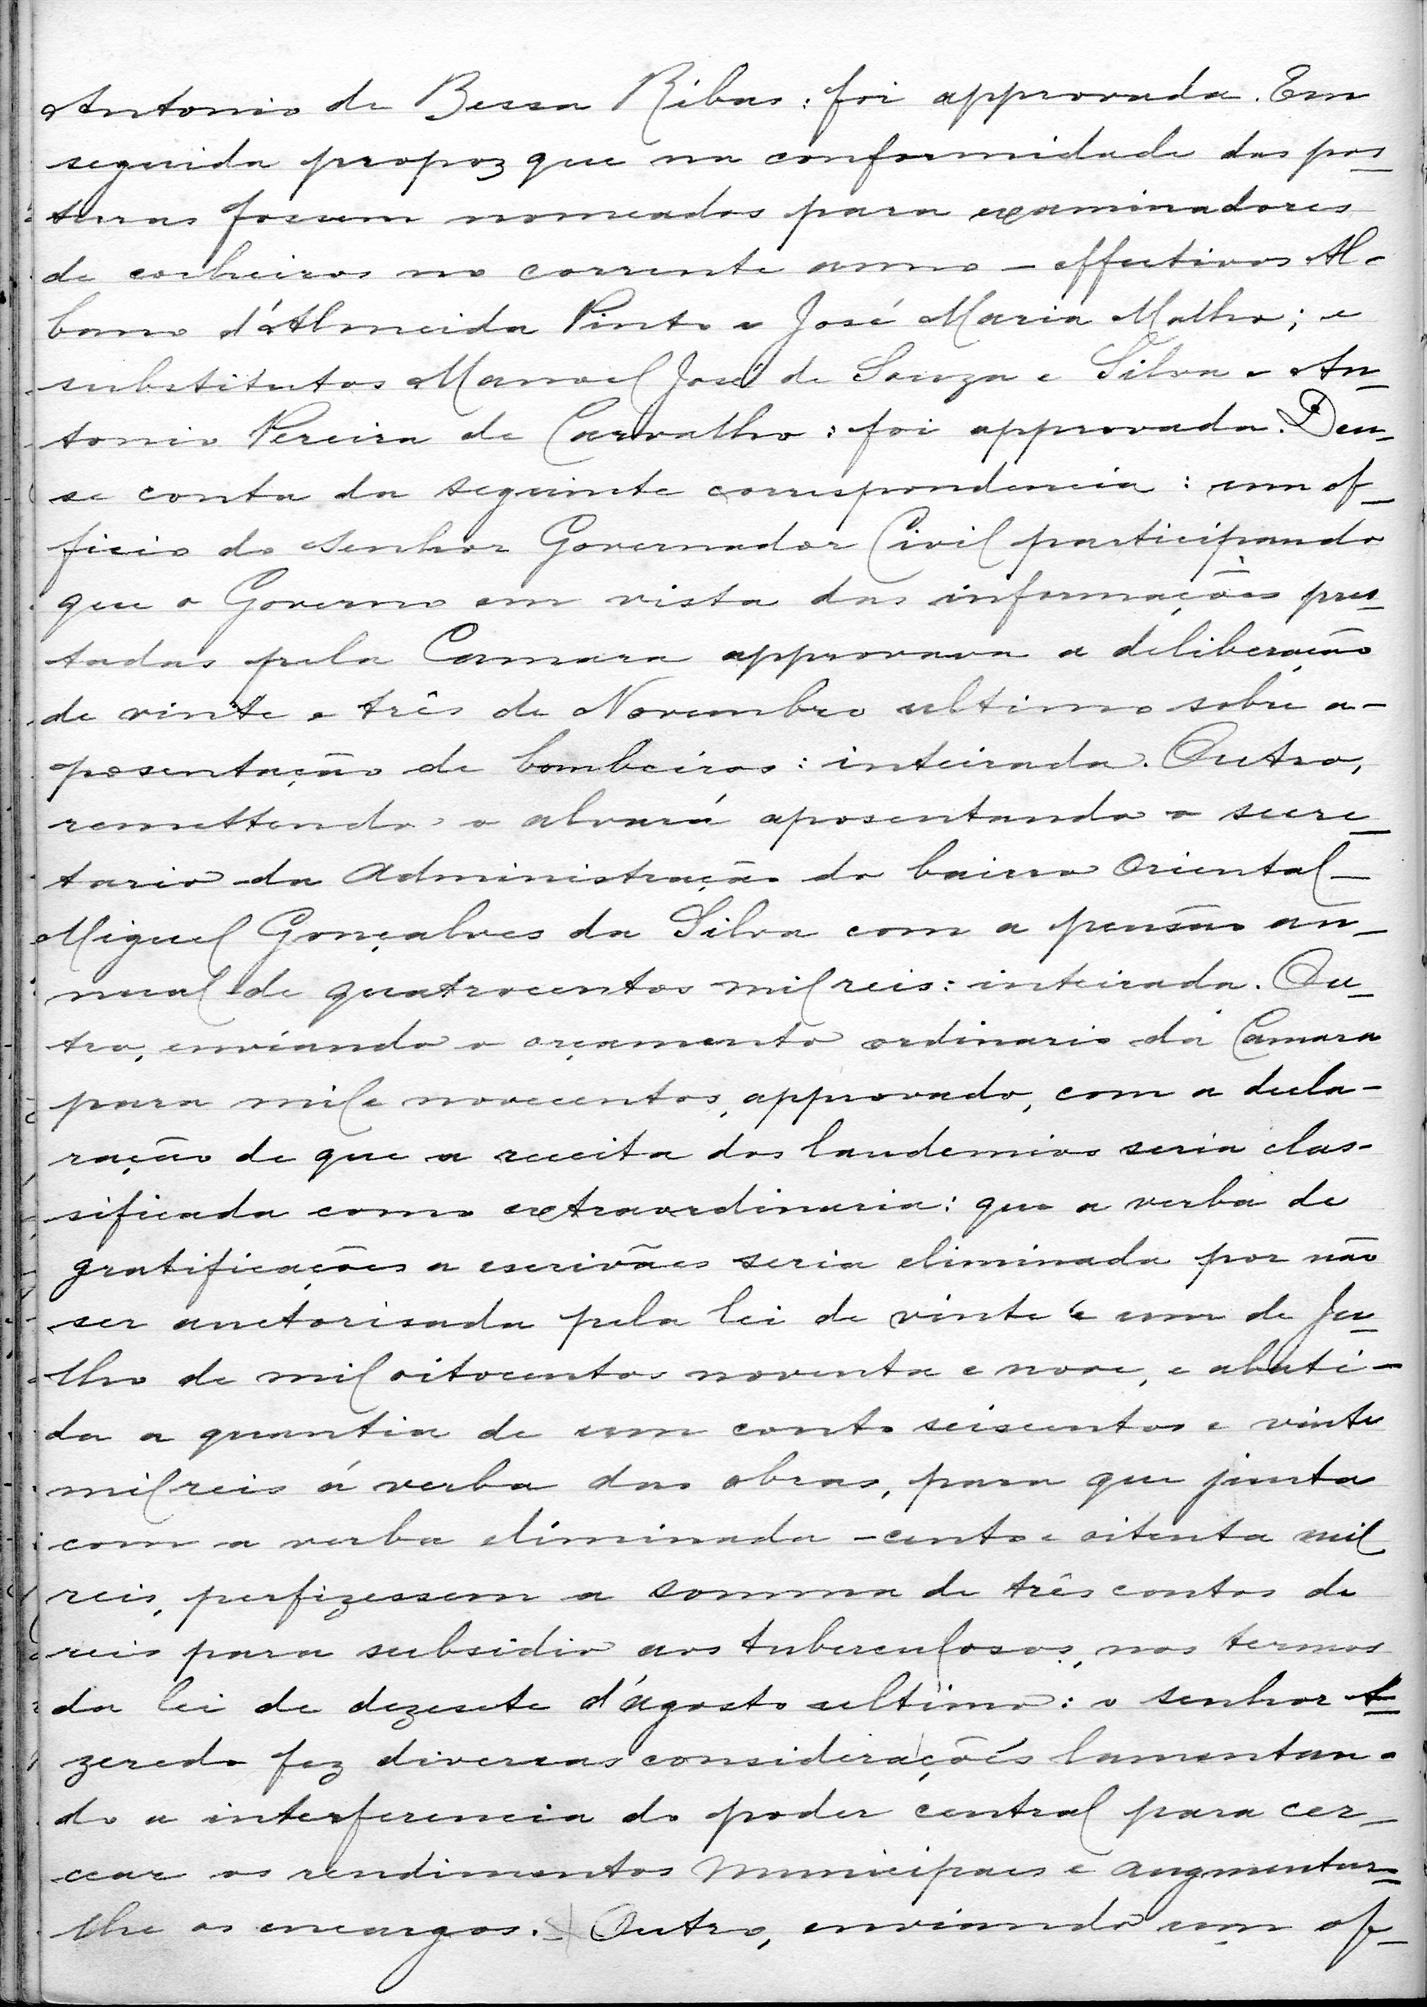 Antonio de Bessa Ribas: foi approvada. Em
seguida propoz que na conformidade das pos-
turas fossem nomeados para examinadores
de cocheiros no corrente anno - effectivos Al-
bano d'Almeida Pinto e José Maria Malho; e
substitutos Manoel José de Souza e Silva e An-
tonio Pereira de Carvalho: foi approvada. Deu-
se conta da seguinte correspondencia: um of-
ficio do Senhor Governador Civil participando
que o Governo em vista das informações pres-
tadas pela Camara approvava a deliberação
de vinte e três de Novembro ultimo sobre a-
posentação de bombeiros: inteirada. Outro,
remettendo o alvará aposentando o secre-
tario da Administração do bairro Oriental-
Miguel Gonçalves da Silva com a pensão an-
nual de quatrocentos mil reis: inteirada. Ou-
tro, enviando o orçamento ordinario da Camara
para mil e novecentos, approvado, com a decla-
ração de que a receita dos laudemios seria clas-
sificada como extraordinaria: que a verba de
gratificações a escrivães seria eliminada por não
ser auctorisada pela lei de vinte e um de Ju-
lho de mil oitocentos noventa e nove, e abati-
da a quantia de um conto seiscentos e vinte
mil reis á verba das obras, para que junta
com a verba eliminada - cento e oitenta mil
reis, perfizessem a somma de três contos de
reis para subsidio aos tuberculosos, nos termos
da lei de dezesete d'agosto ultimo: o senhor A-
zeredo fez diversas considerações lamentan-
do a interferencia do poder central para cer-
cear os rendimentos municipaes e augmentar-
lhe os encargos. Outro, enviando um of-